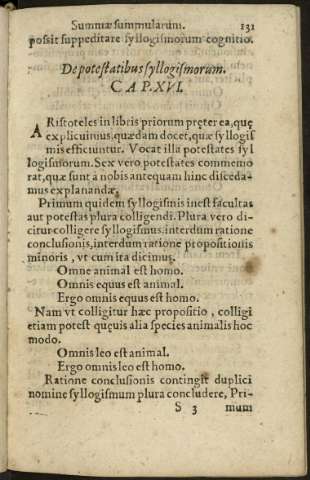 Summæ summularum. 131
possit suppeditare syllogismorum cognitio.
De potestatibus syllogismorum.
CAP. XVI.
ARistoteles in libris priorum pręter ea, quę
explicuimus, quædam docet, quæ syllogis
mis efficiuntur. Vocat illa potestates syl
logismorum. Sex vero potestates commemo
rat, quæ sunt à nobis antequam hinc disceda-
mus explanandæ.
Primum quidem syllogismis inest facultas
aut potestas plura colligendi. Plura vero di-
citur colligere syllogismus: interdum ratione
conclusionis, interdum ratione propositionis
minoris, vt cum ita dicimus.
Omne animal est homo.
Omnis equus est animal.
Ergo omnis equus est homo.
Nam vt colligitur hæc propositio, colligi
etiam potest quęuis alia species animalis hoc
modo.
Omnis leo est animal.
Ergo omnis leo est homo.
Ratione conclusionis contingit duplici
nomine syllogismum plura concludere, Pri-
S 3 mum